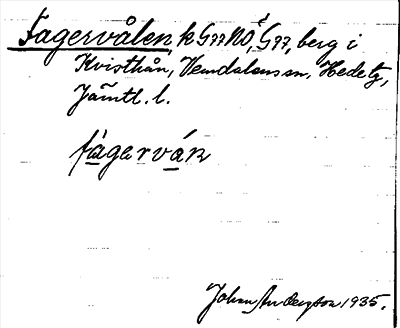 Fagervålen, k G77NÖ, G77, berg i
Kvisthån, Vemdalens sn, Hede tg,
Jämtl. l.
fàgervák
Johan Andersson 1935.